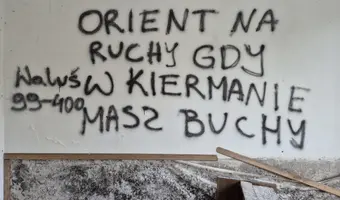 ORIENT NA
RUCHY GDY
W KIERMANIE
MASZ BUCHY
Waluś
99-400